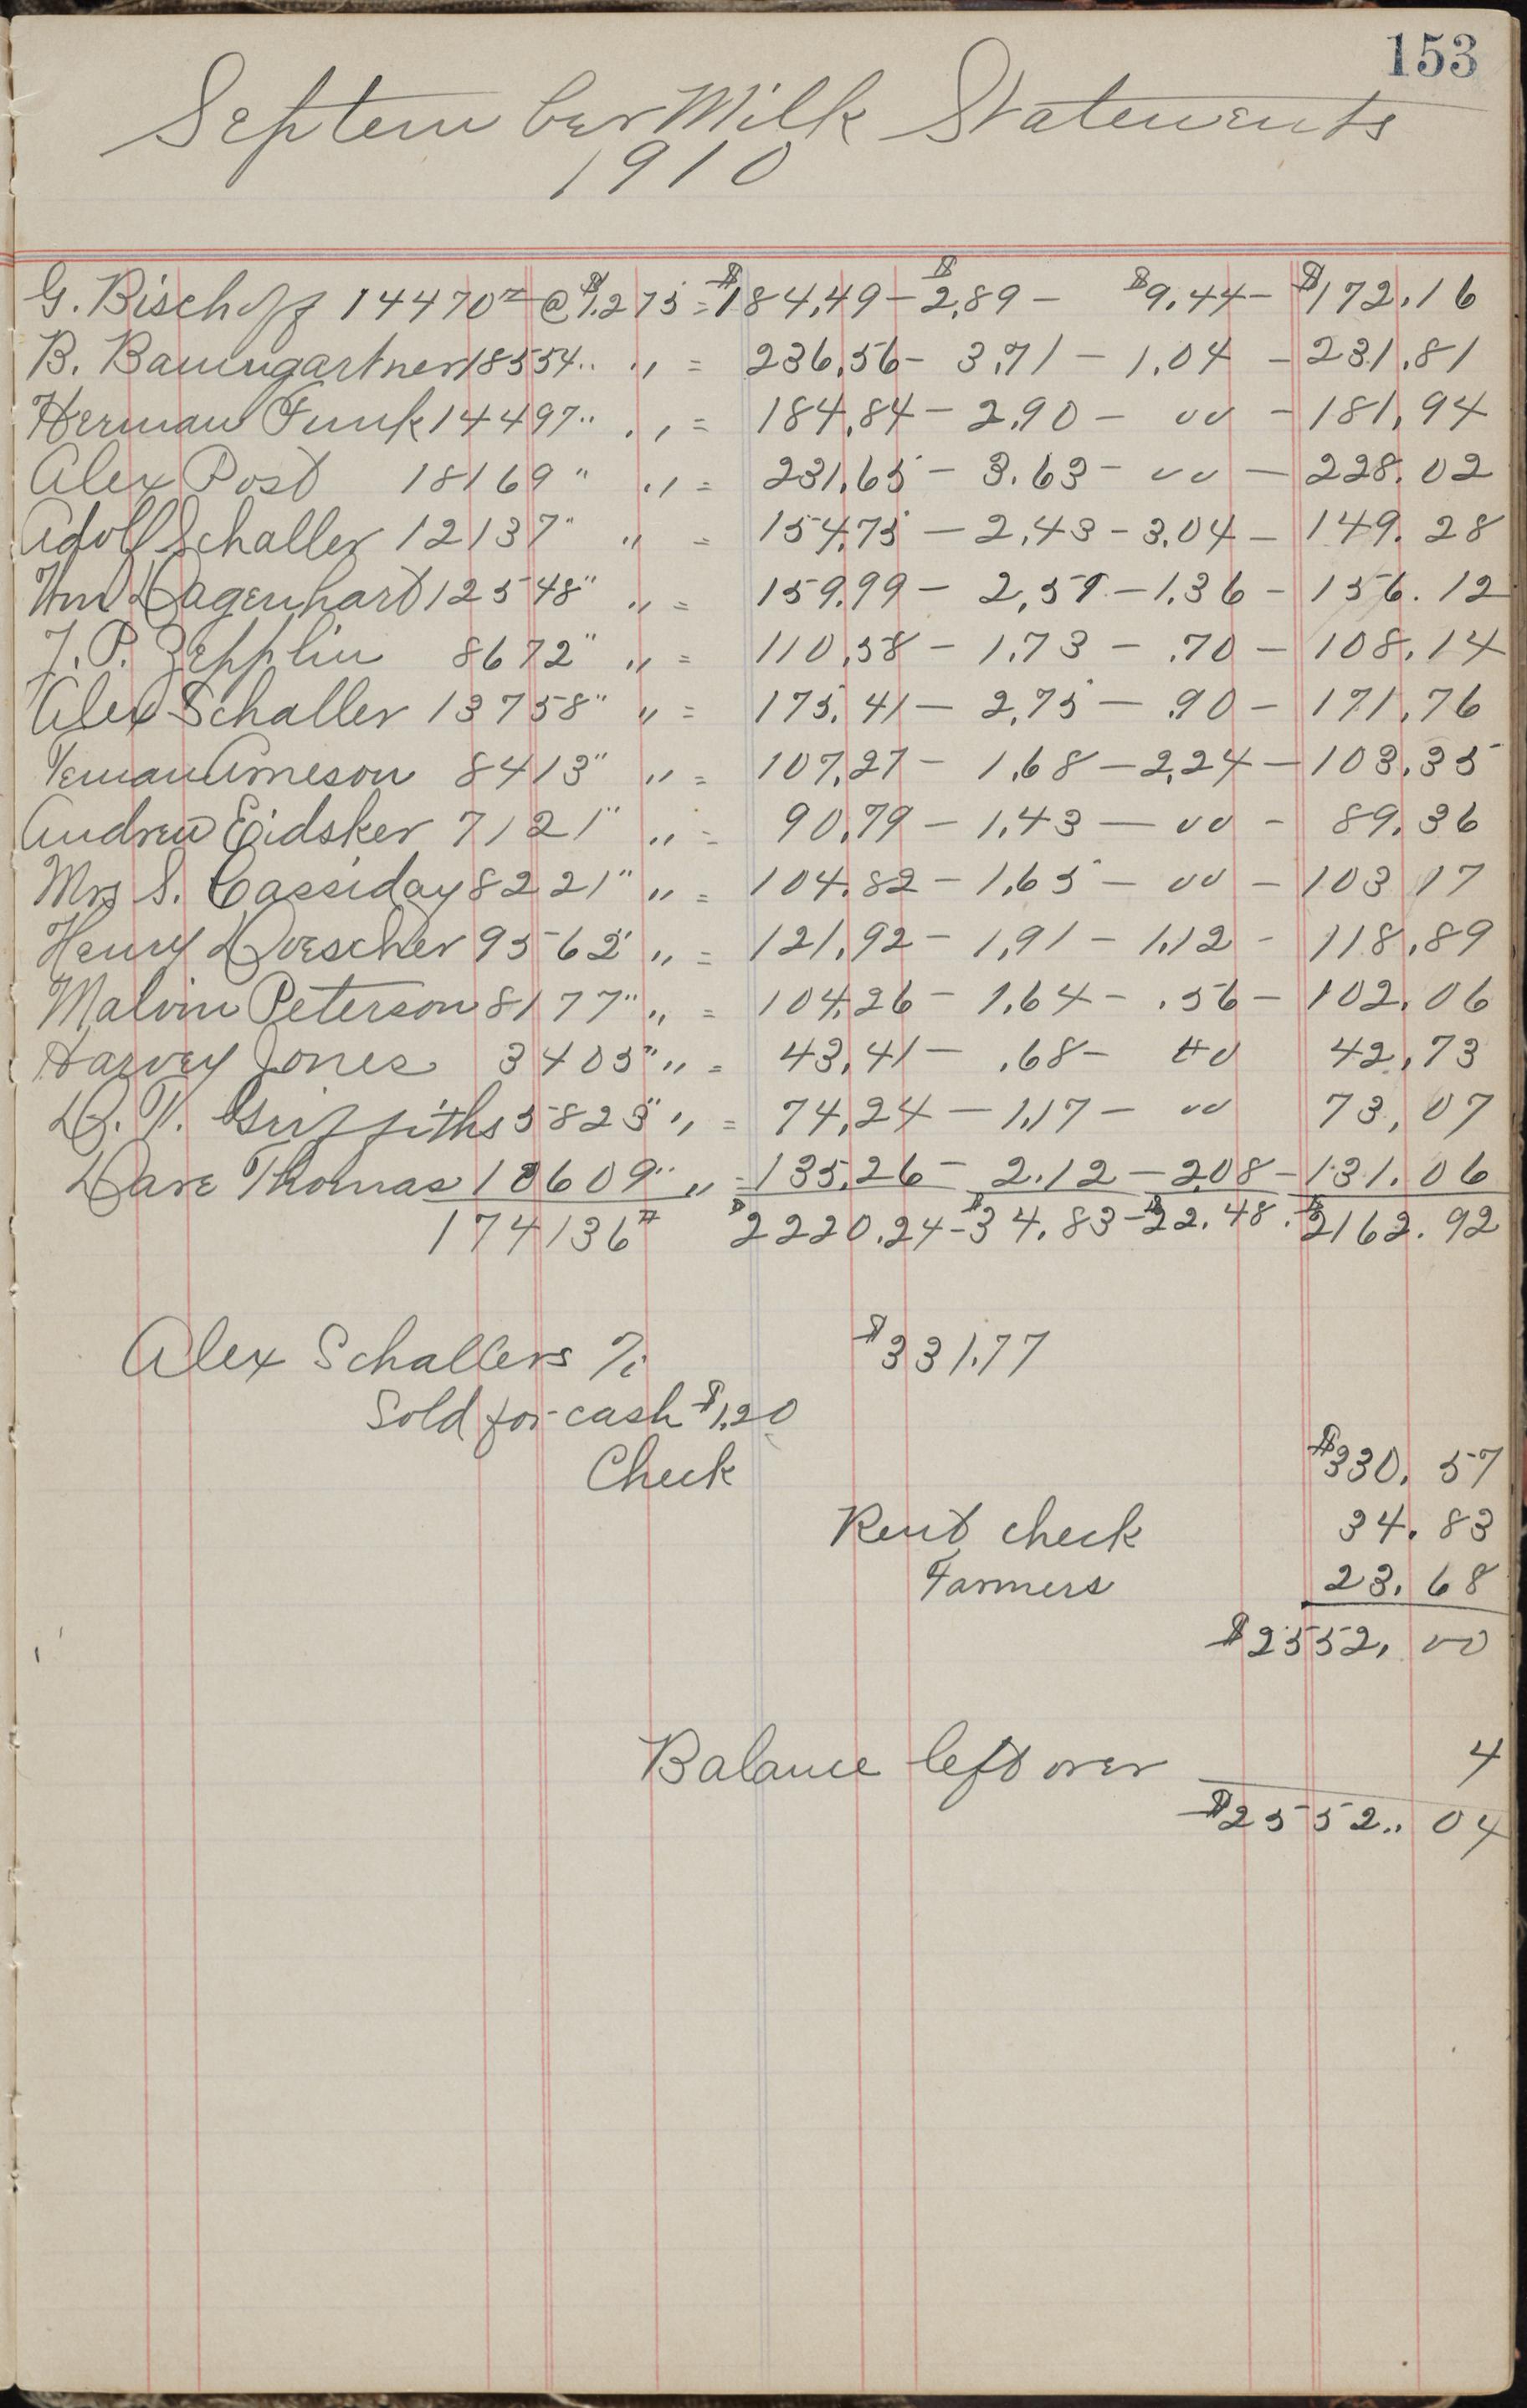 153
September Milk Statements
1910
G. Bischoff 14470# @ $1.275 = $184.49 - $2.89 - $9.44 - $172.16
B. Baumgartner 18554 " " = 236.56 - 3.71 - 1.04 - 231.81
Herman Funk 14497 " " = 184.84 - 2.90 - 00 - 181.94
Alex Post 18169 " " = 231.65 - 3.63 - 00 - 228.02
Adolf Schaller 12137 " " = 154.75 - 2.43 - 3.04 - 149.28
Wm Dagenhart 12548 " " = 159.99 - 2.51 - 1.36 - 156.12
J. P. Zepplin 8672 " " = 110.58 - 1.73 - .70 - 108.14
Alex Schaller 13758 " " = 175.41 - 2.75 - .90 - 171.76
Arneson 8413 " " = 107.27 - 1.68 - 2.24 - 103.35
Andrew Eidsker 7121 " " = 90.79 - 1.43 - 00 - 89.36
Mrs S. Cassiday 8221 " " = 104.82 - 1.65 - 00 - 103 17
Henry Doescher 9562 " " = 121.92 - 1.91 - 1.12 - 118.89
Malvin Peterson 8177 " " = 104.26 - 1.64 - .56 - 102.06
Harvey Jones 3405 " " = 43.41 - .68 - 00 42.73
D. T. Griffiths 5823 " " = 74.24 - 1.17 - 00 73.07
Dave Thomas 10609 " " = 135.26 - 2.12 - 2.08 - 131.06
174136# $2220.24 - $34.83 - $22.48. $2162.92
Alex Schallers % $331.77
Sold for cash $1.20
Check $330.57
Rent check 34.83
Farmers 23.68
$2552.00
Balance left over 4
$2552.. 04